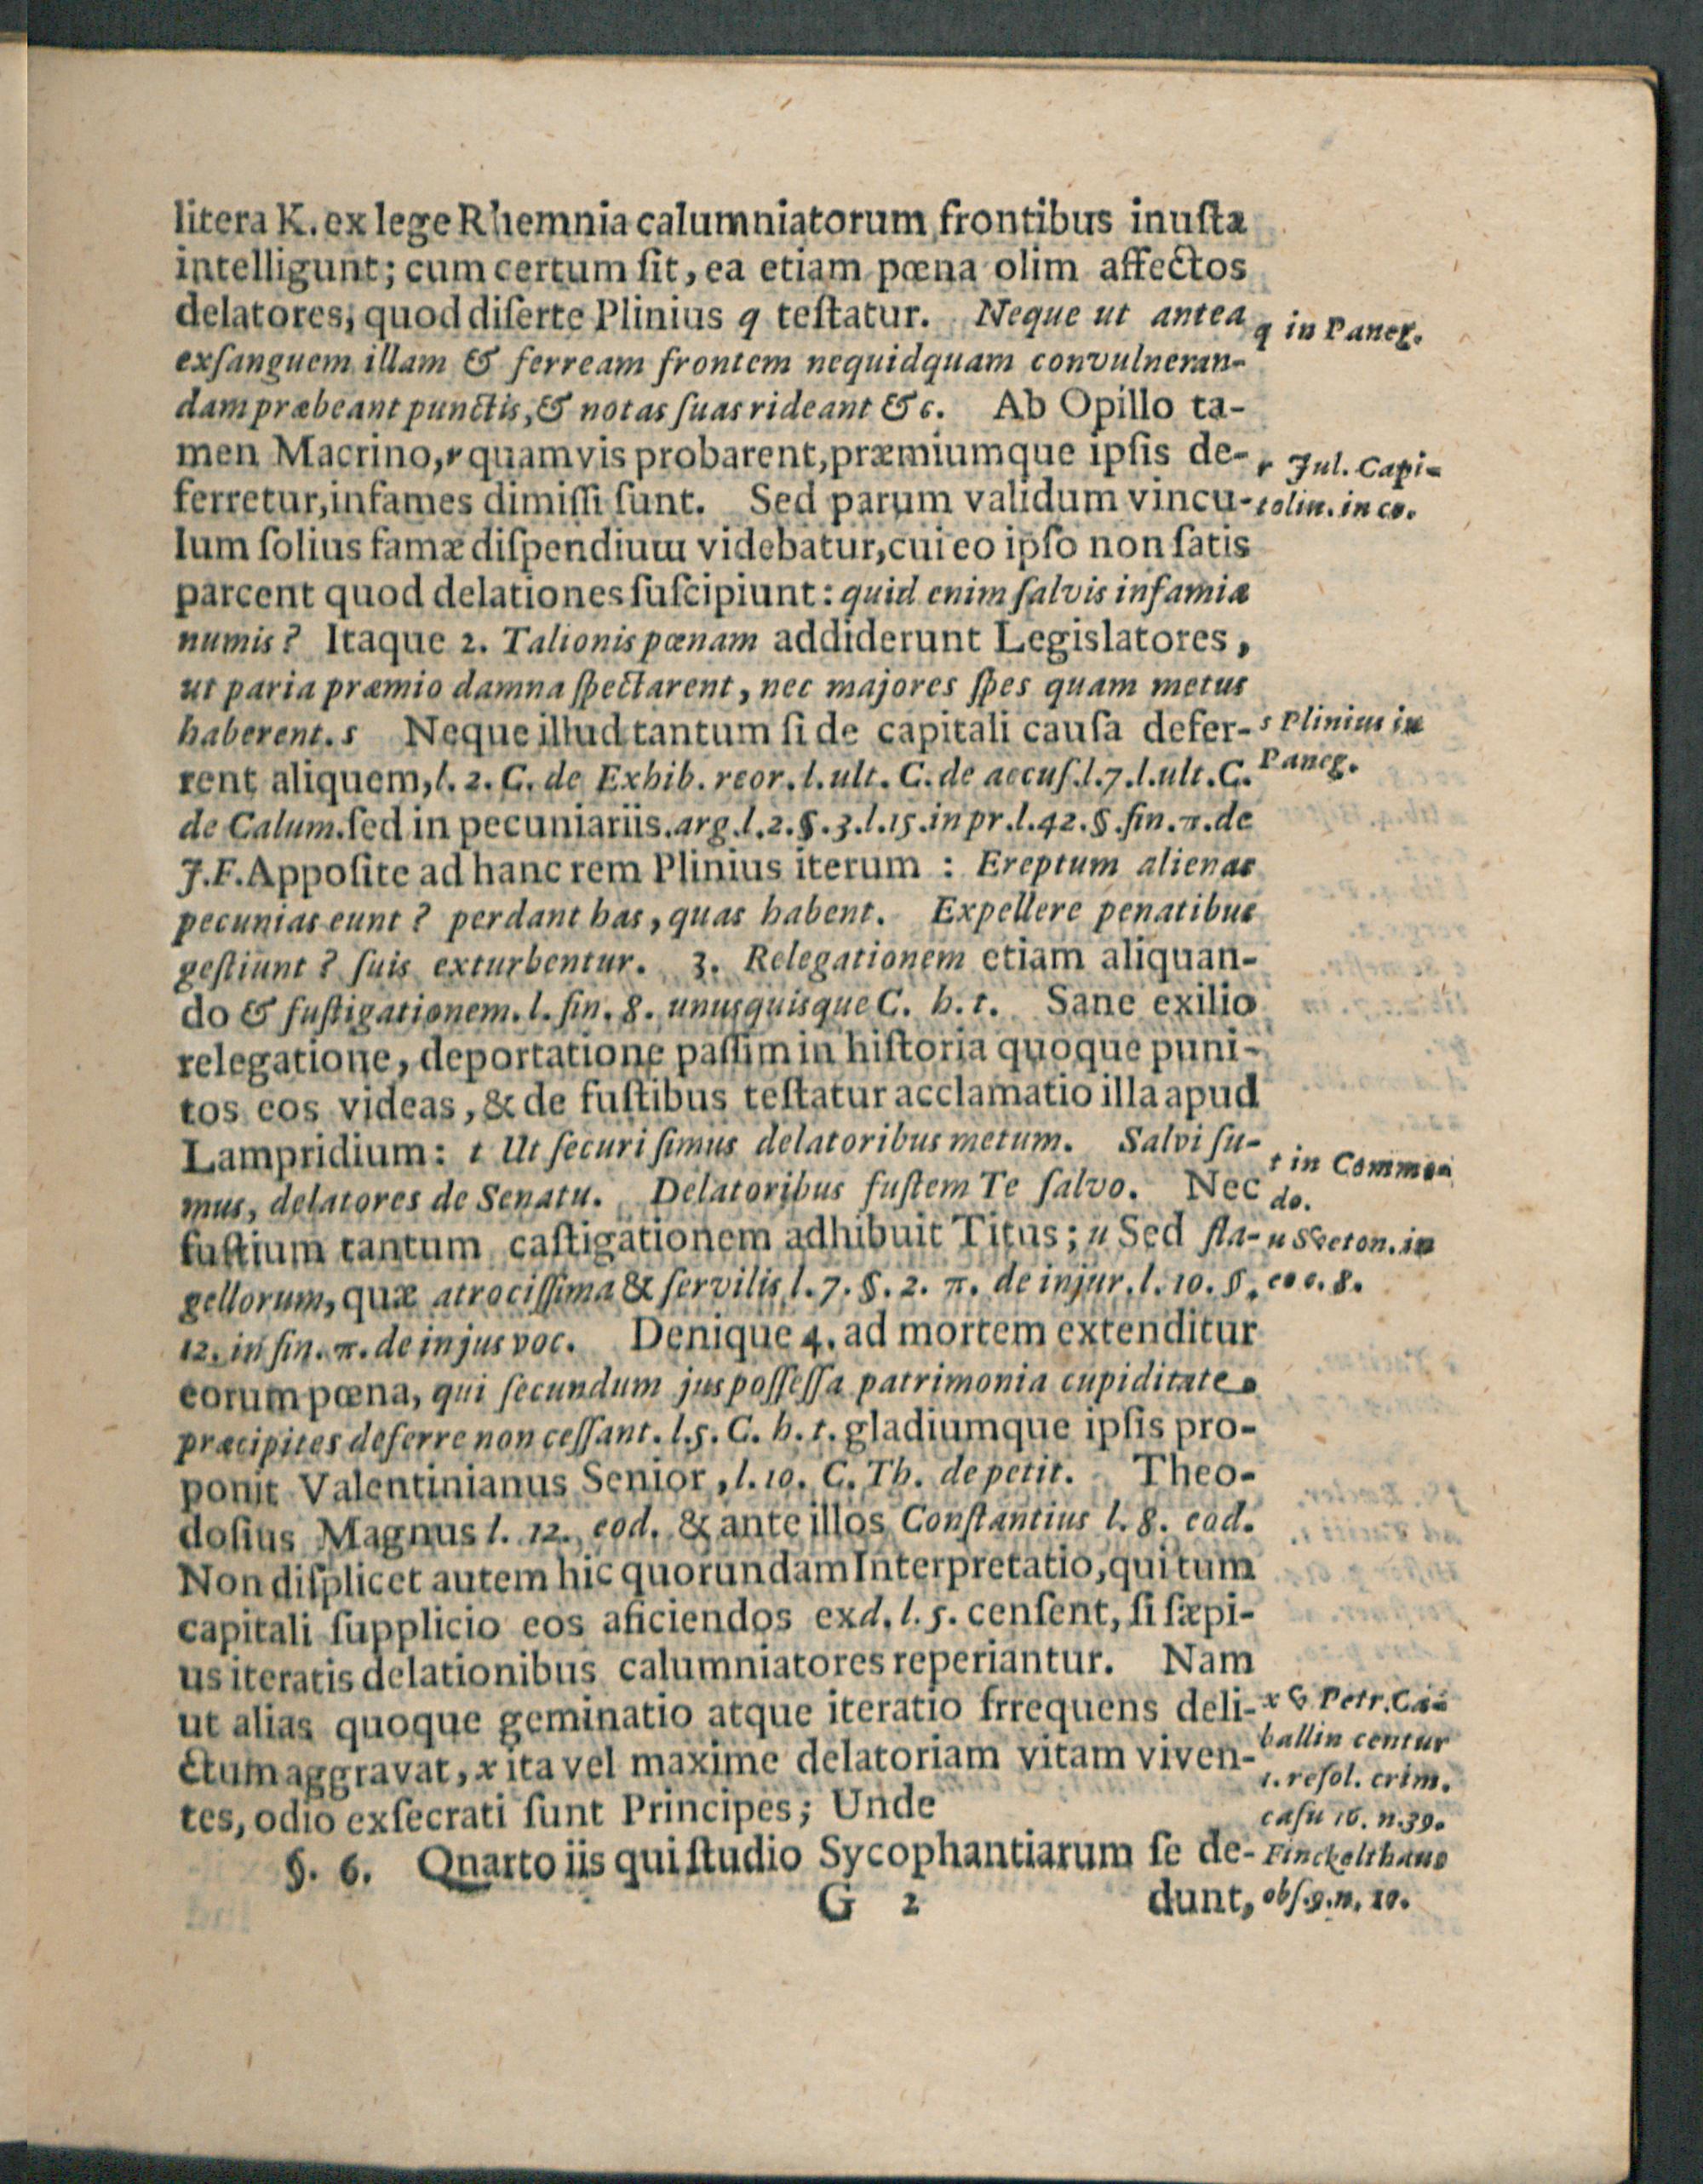 litera K. ex lege Rhemnia calumniatorum frontibus inuſtæ
intelligunt; cum certum ſit, ea etiam pœna olim affectos
delatores, quod diſerte Plinius q teſtatur. Neque ut antea
exſanguem illam & ferream frontem nequidquam convulneran-
dam præbeant punctis, & notas ſuas rideant &c. Ab Opillo ta-
men Macrino, r quamvis probarent, præmiumque ipſis de-
ferretur, infames dimiſſi ſunt. Sed parum validum vincu-
lum ſolius famæ diſpendium videbatur, cui eo ipſo non ſatis
parcent quod delationes ſuſcipiunt: quid enim ſalvis infamia
numis? Itaque 2. Talionis pœnam addiderunt Legislatores,
ut paria præmio damna ſpectarent, nec majores ſpes quam metus
haberent. s Neque illud tantum ſi de capitali cauſa defer-
rent aliquem, l. 2. C. de Exhib. reor. l. ult. C. de accuſ. l. 7. l. ult. C.
de Calum. ſed in pecuniariis. arg. l. 2. §. 3. l. 15. in pr. l. 42. §. fin. π. de
J. F. Appoſite ad hanc rem Plinius iterum: Ereptum alienas
pecunias eunt? perdant has, quas habent. Expellere penatibus
geſtiunt? ſuis exturbentur. 3. Relegationem etiam aliquan-
do & fuſtigationem. l. fin. 8. unusquisque C. h. t. Sane exilio
relegatione, deportatione paſſim in hiſtoria quoque puni-
tos eos videas, & de fuſtibus teſtatur acclamatio illa apud
Lampridium: t Ut ſecuri ſimus delatoribus metum. Salvi ſu-
mus, delatores de Senatu. Delatoribus fuſtem Te ſalvo. Nec
fuſtium tantum caſtigationem adhibuit Titus; u Sed fla-
gellorum, quæ atrociſſima & ſervilis l. 7. §. 2. π. de injur. l. 10. §.
12. in fin. π. de in jus voc. Denique 4. ad mortem extenditur
eorum pœna, qui ſecundum jus poſſeſſa patrimonia cupiditate
præcipites deferre non ceſſant. l. 5. C. h. t. gladiumque ipſis pro-
ponit Valentinianus Senior, l. 10. C. Th. de petit. Theo-
doſius Magnus l. 12. eod. & ante illos Conſtantius l. 8. eod.
Non diſplicet autem hic quorundam Interpretatio, qui tum
capitali ſupplicio eos aficiendos ex d. l. 5. cenſent, ſi ſæpi-
us iteratis delationibus calumniatores reperiantur. Nam
ut alias quoque geminatio atque iteratio frrequens deli-
ctum aggravat, x ita vel maxime delatoriam vitam viven-
tes, odio exſecrati ſunt Principes; Unde
§. 6. Quarto iis qui ſtudio Sycophantiarum ſe de-
G 2 dunt,
q in Paneg.
r Jul. Capi-
tolin. in eo.
s Plinius in
Paneg.
t in Commo-
do.
u Sveton. in
eo c. 8.
x Petr. Ca-
ballin centur
1. reſol. crim.
caſu 16. n. 39.
Finckelthaus
obſ. 9. n. 10.